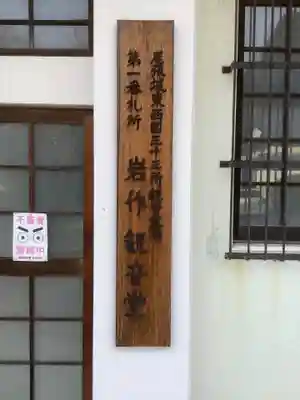 尾張坂東西国三十三所観音霊場
第一番札所
岩作観音堂
不審者
警戒中